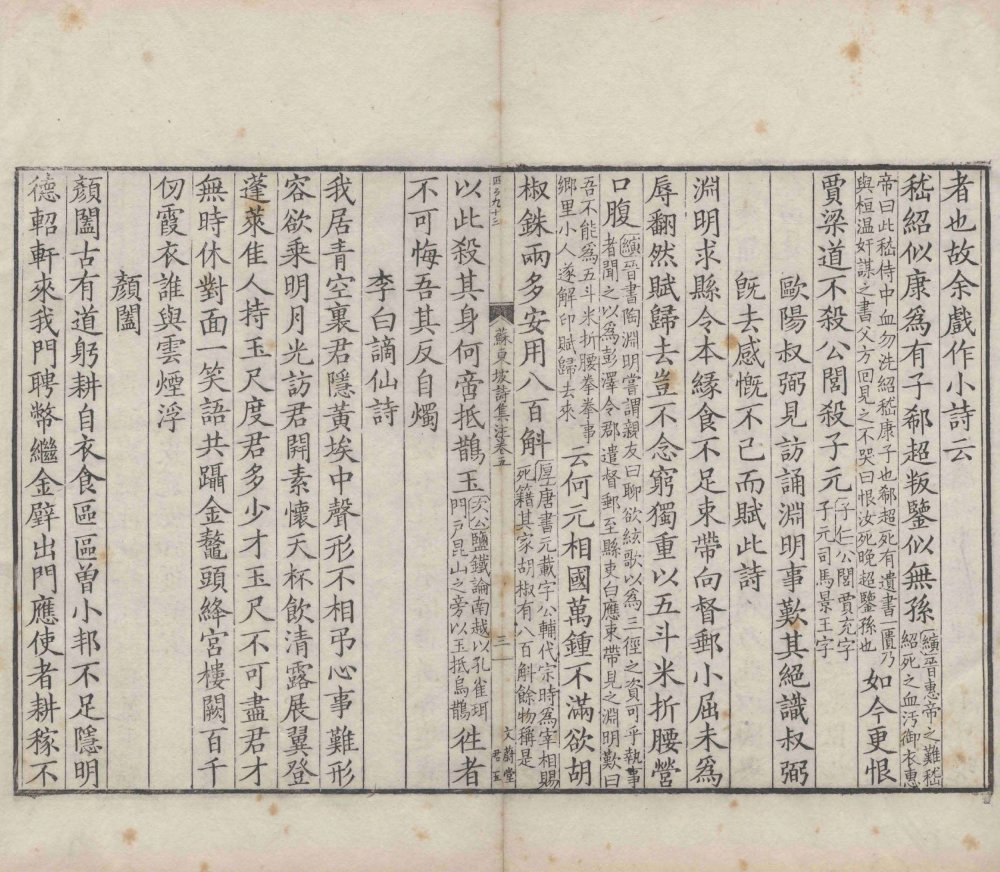 者也故余戲作小詩云
嵇紹似康爲有子郗超叛鑒似無孫
縯晉惠帝之難嵇
紹死之血汚御衣惠
帝曰此嵇侍中血勿洗紹嵇康子也郗超死有遺書一匱乃
與桓温奸謀之書父方回見之不哭曰恨汝死晚超鑒孫也
如今更恨
賈梁道不殺公閭殺子元
子仁公閭賈充字
子元司馬景王字
歐陽叔弼見訪誦淵明事歎其絕識叔弼
旣去感慨不已而賦此詩
淵明求縣令本緣食不足束帶向督郵小屈未爲
辱翻然賦歸去豈不念窮獨重以五斗米折腰營
口腹
縯晉書陶淵明嘗謂親友曰聊欲絃歌以爲三徑之資可乎執事
者聞之以爲彭澤令郡遣督郵至縣吏白應束帶見之淵明歎曰
吾不能爲五斗米折腰拳拳事
鄉里小人遂解印賦歸去來
云何元相國萬鍾不滿欲胡
椒銖兩多安用八百斛
厚唐書元載字公輔代宗時爲宰相賜
死籍其家胡椒有八百斛餘物稱是
九十三
蘇東坡詩集注卷五
三
文蔚堂
以此殺其身何啻抵鵲玉
次公鹽鐵論南越以孔雀珥
門戶昆山之旁以玉抵烏鵲
往者
不可悔吾其反自燭
李白謫仙詩
我居青空裏君隱黃埃中聲形不相弔心事難形
容欲乘明月光訪君開素懷天杯飲清露展翼登
蓬萊佳人持玉尺度君多少才玉尺不可盡君才
無時休對面一笑語共躡金鼇頭絳宮樓闕百千
仞霞衣誰與雲煙浮
顏闔
顏闔古有道躬耕自衣食區區曾小邦不足隱明
德軺軒來我門聘幣繼金璧出門應使者耕稼不